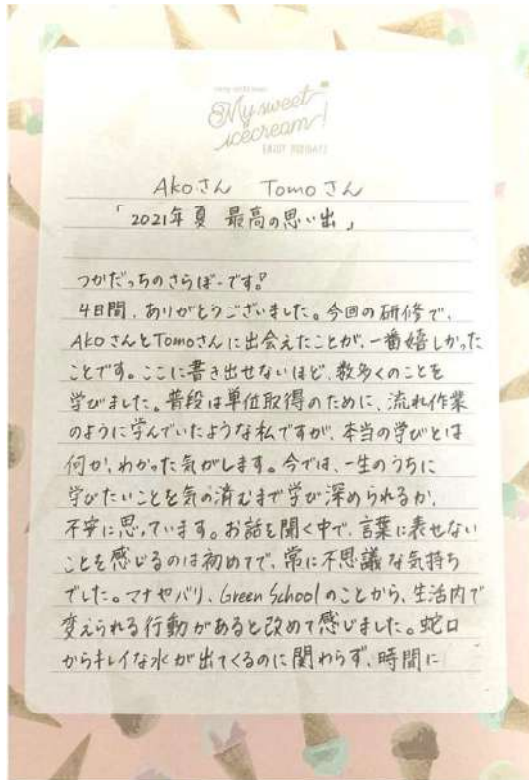 My sweet
icecream!
ENJOY HOLIDAYS
Akoさん Tomoさん
「2021年夏 最高の思い出」
つかだっちのさらぼーです。
4日間、ありがとうございました。今回の研修で、
AkoさんとTomoさんに出会えたことが、一番嬉しかった
ことです。ここに書き出せないほど、数多くのことを
学びました。普段は単位取得のために、流れ作業
のように学んでいたような私ですが、本当の学びとは
何か、わかった気がします。今では、一生のうちに
学びたいことを気の済むまで学び深められるか、
不安に思っています。お話を聞く中で、言葉に表せない
ことを感じるのは初めてで、常に不思議な気持ち
でした。マナやバリ、Green Schoolのことから、生活内で
変えられる行動があると改めて感じました。蛇口
からキレイな水が出てくるのに関わらず、時間に